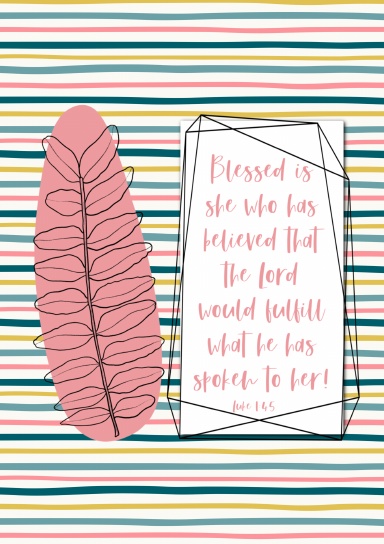 Blessed is
she who has
believed that
the Lord
would fulfill
what he has
spoken to her!
Luke 1:45